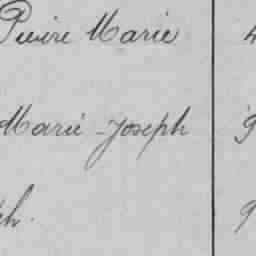 Pierre Marie 4
Marie-Joseph 9
ph. 9